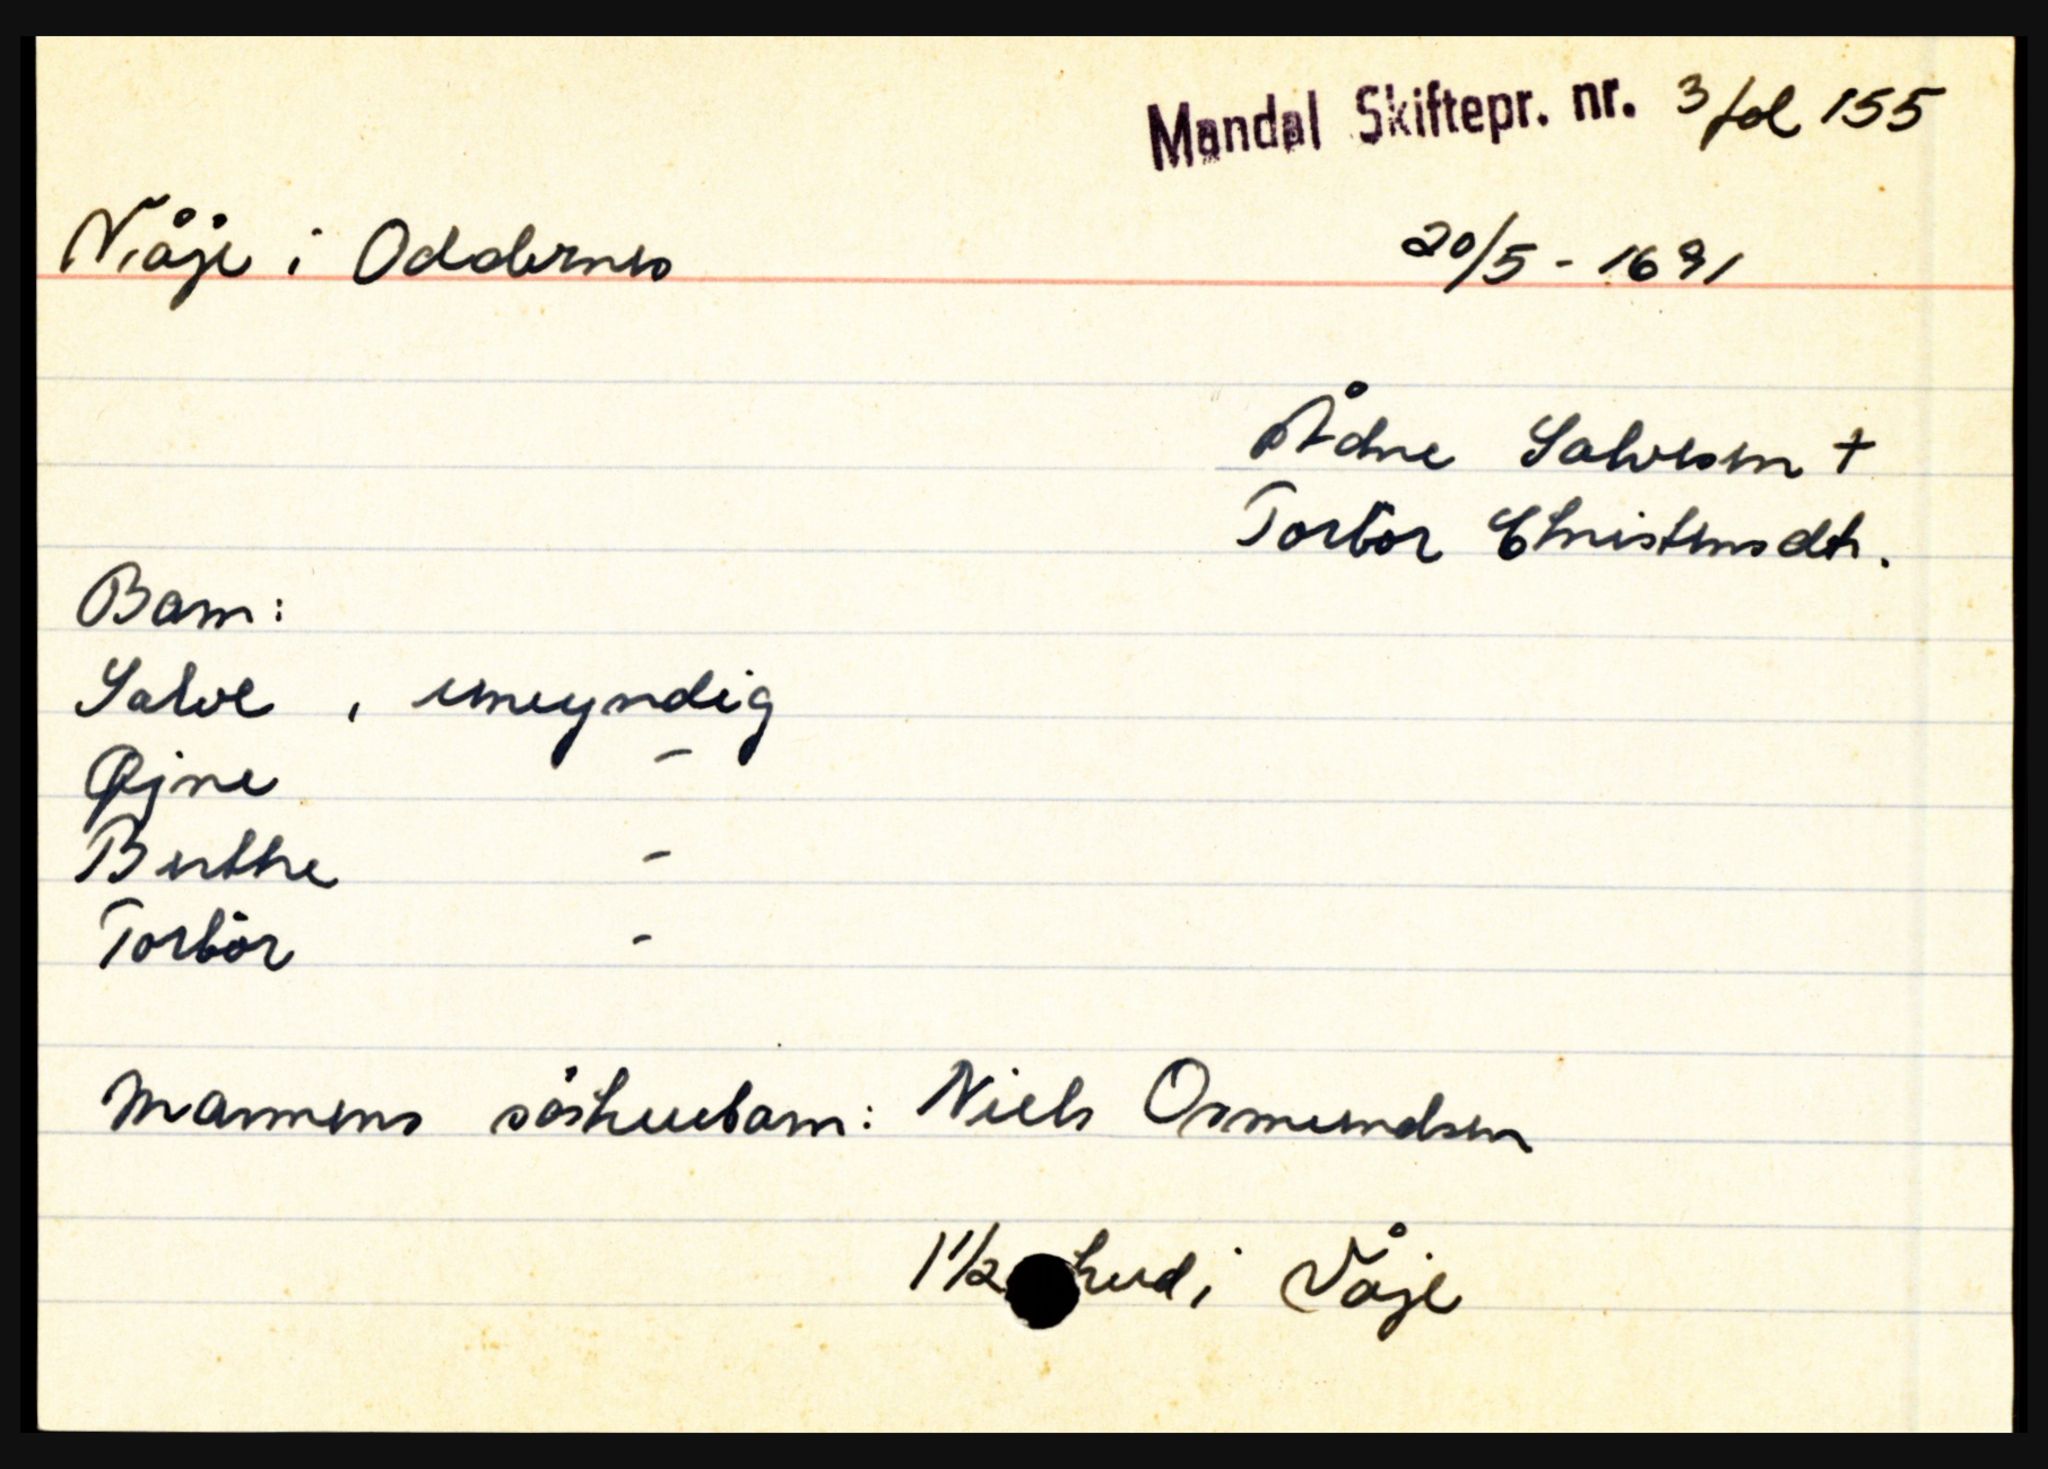 Mandal Skiftepr. nr. 3 fol 155
Våje i Oddernes 20/5 - 1691
Ådne Salvesen +
Torbor Christensdtr.
Barn:
Salve , umyndig
Øjne -
Berthe -
Torbor -
Mannens söskenbarn: Niels Osmundsen
1 1/2 hud i Våje